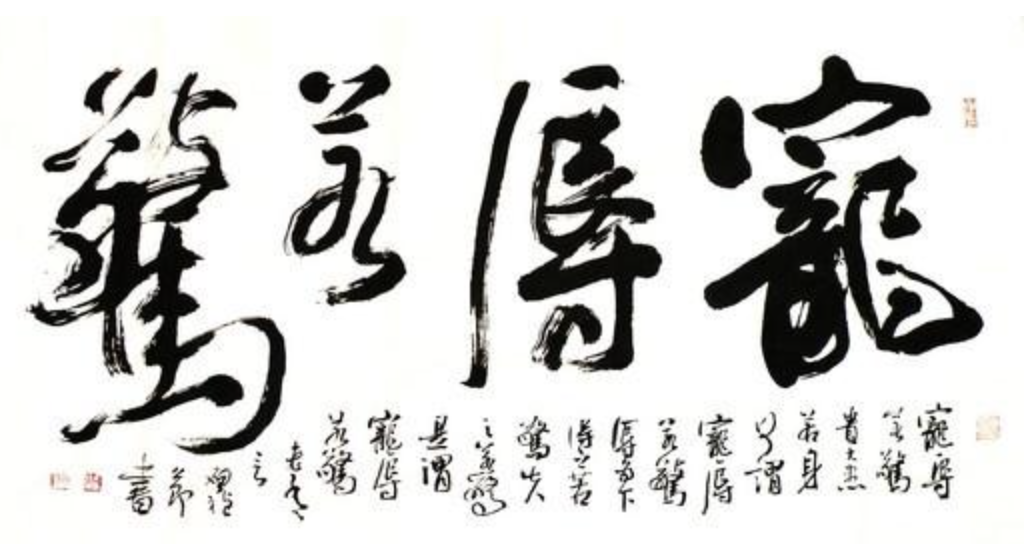 寵辱若驚
寵辱
若驚
貴大患
若身
何謂
寵辱
若驚
辱為下
得之若
驚失
之若驚
是謂
寵辱
若驚
節
書